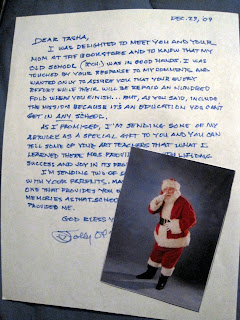 DEC. 27, '09
DEAR TASHA,
I WAS DELIGHTED TO MEET YOU AND YOUR
MOM AT THE BOOKSTORE AND TO KNOW THAT MY
OLD SCHOOL WAS IN GOOD HANDS. I WAS
TOUCHED BY YOUR RESPONSE TO MY COMMENTS AND
WANTED TO ASSURE YOU THAT YOUR EVERY
EFFORT WILL BE REPAID AN HUNDRED
FOLD WHEN YOU FINISH... BUT, AS YOU SAID, INCLUDE
THE MISSION BECAUSE IT'S AN EDUCATION YOU CAN'T
GET IN ANY SCHOOL.
AS I PROMISED, I'M SENDING SOME OF MY
ARTWORK AS A SPECIAL GIFT TO YOU AND YOU CAN
TELL SOME OF YOUR ART TEACHERS THAT WHAT I
LEARNED THERE HAS PROVIDED LIFELONG
SUCCESS AND JOY IN ITS
I'M SENDING TWO OF
WITH YOUR PARENTS. MA
ONE THAT PROVIDES YOU
MEMORIES AS THAT SCHOOL
PROVIDED ME.
GOD BLESS
Jolly